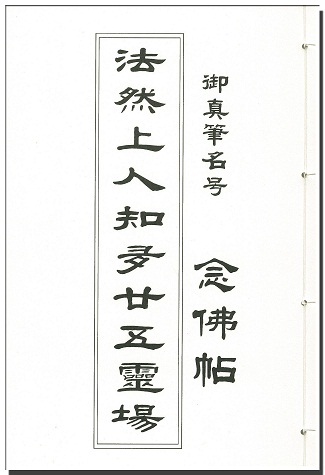 御真筆名号
念佛帖
法然上人知多廿五霊場